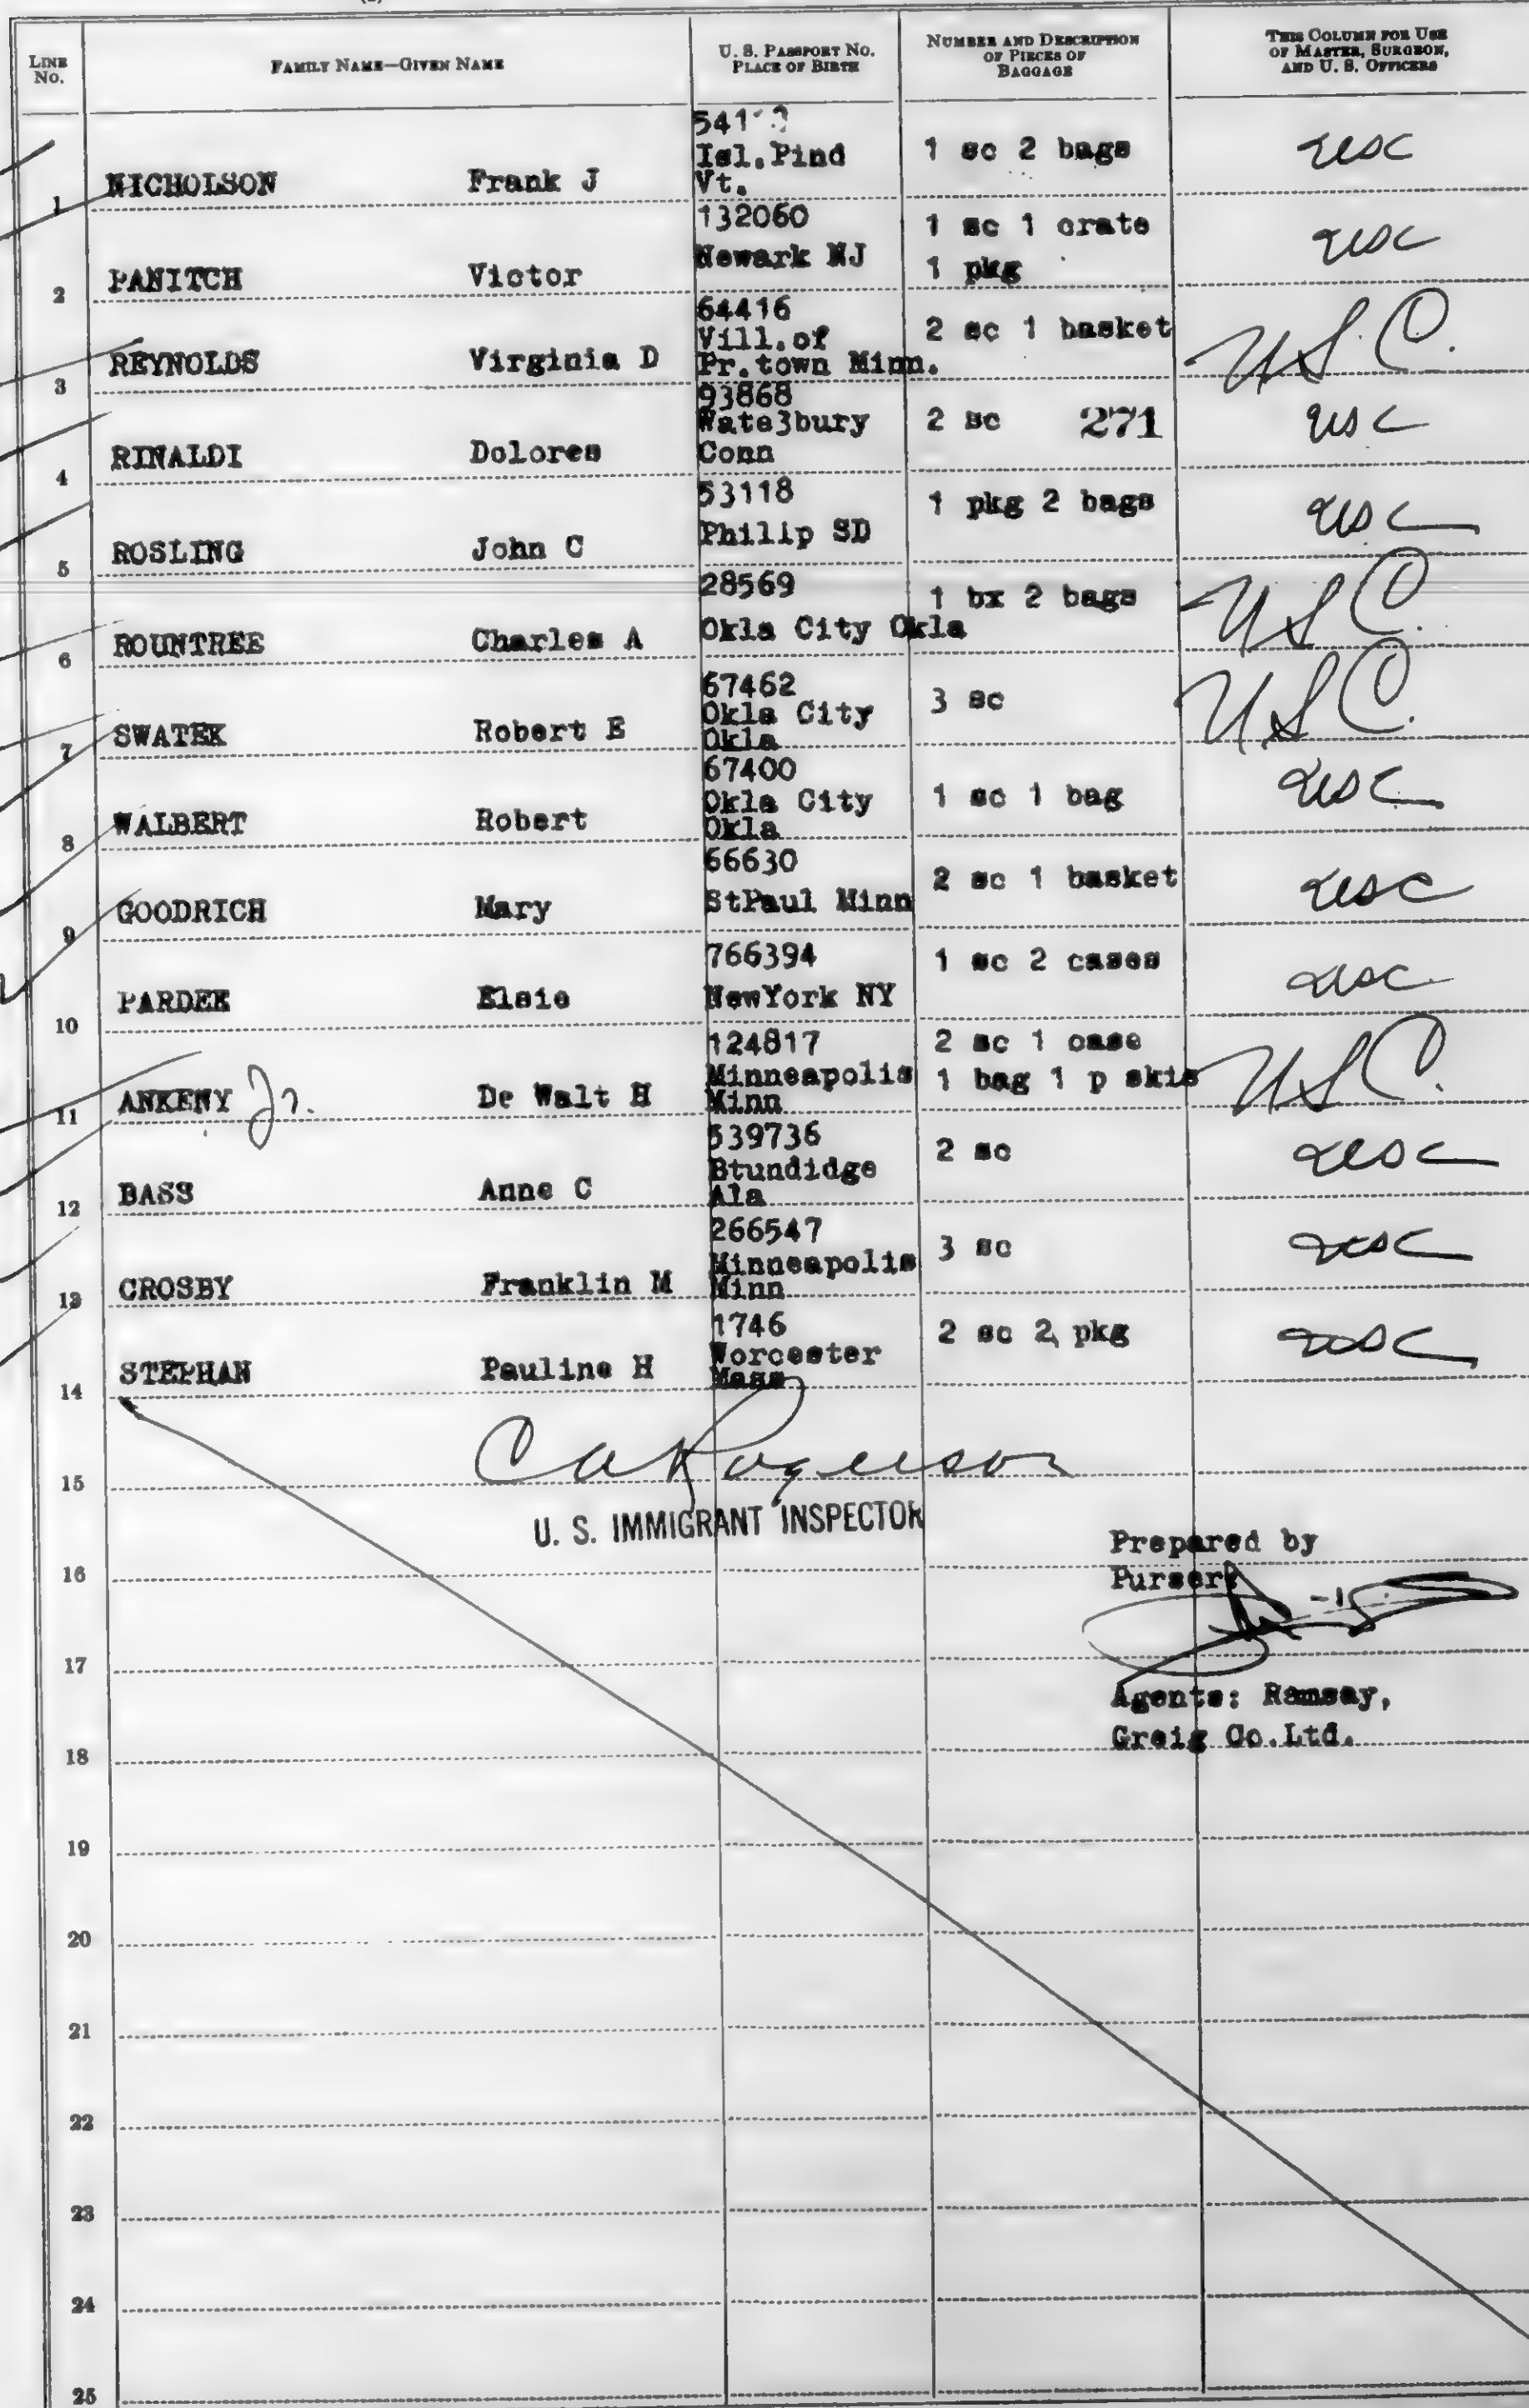 LINE NO. FAMILY NAME—GIVEN NAME U. S. PASSPORT NO. PLACE OF BIRTH NUMBER AND DESCRIPTION OF PIECES OF BAGGAGE THIS COLUMN FOR USE OF MASTER, SURGEON, AND U. S. OFFICERS
1 NICHOLSON Frank J Isl.Pind Vt. 1 sc 2 bags usc
2 PANITCH Victor 132060 Newark NJ 1 sc 1 crate 1 pkg usc
3 REYNOLDS Virginia D 64416 Vill.of Pr.town Minn. 2 sc 1 basket USC.
4 RINALDI Dolores 93868 Wate3bury Conn 2 sc 271 usc
5 ROSLING John C 53118 Philip SD 1 pkg 2 bags usc
6 ROUNTREE Charles A 28569 Okla City Okla 1 bx 2 bags USC.
7 SWATEK Robert E 67462 Okla City Okla 3 sc USC.
8 WALBERT Robert 67400 Okla City Okla 1 sc 1 bag usc
9 GOODRICH Mary 66630 StPaul Minn 2 sc 1 basket usc
10 PARDEE Elsie 766394 NewYork NY 1 sc 2 cases usc
11 ANKENY Jr. De Walt H 124817 Minneapolis Minn 2 sc 1 case 1 bag 1 p skis USC.
12 BASS Anne C 539736 Btundidge Ala 2 sc usc
13 CROSBY Franklin M 266547 Minneapolis Minn 3 sc usc
14 STEPHAN Pauline H 1746 Worcester Mass 2 sc 2 pkg usc
15 C A Rogerson
U. S. IMMIGRANT INSPECTOR
Prepared by
16 Purser
17
Agents: Ramsay,
18 Greig Co.Ltd.
19
20
21
22
23
24
25